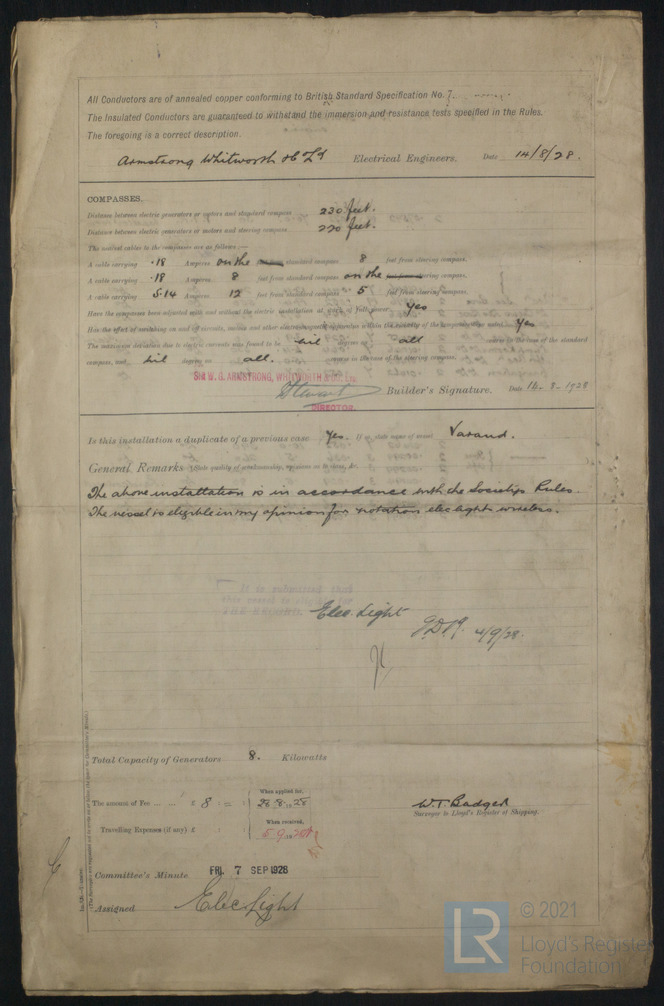 All Conductors are of annealed copper conforming to British Standard Specification No. 7.
The Insulated Conductors are guaranteed to withstand the immersion and resistance tests specified in the Rules.
The foregoing is a correct description.
Armstrong Whitworth & Co Ld Electrical Engineers. Date 14/8/28.
COMPASSES.
Distance between electric generators or motors and standard compass 230 feet.
Distance between electric generators or motors and steering compass 220 feet.
The nearest cables to the compasses are as follows:—
A cable carrying .18 Amperes on the standard compass 8 feet from steering compass.
A cable carrying .18 Amperes 8 feet from standard compass on the steering compass.
A cable carrying 5.14 Amperes 12 feet from standard compass 5 feet from steering compass.
Have the compasses been adjusted with and without the electric installation at work at full power Yes
Has the effect of switching on and off circuits, motors and other electro-magnetic apparatus within the vicinity of the compasses been noted Yes
The maximum deviation due to electric currents was found to be nil degrees on all course in the case of the standard
compass, and nil degrees on all. course in the case of the steering compass.
SIR W. G. ARMSTRONG, WHITWORTH & CO.
Stewart Builder's Signature. Date 14-8-1928
DIRECTOR.
Is this installation a duplicate of a previous case Yes. If so, state name of vessel Varand.
General Remarks (State quality of workmanship, opinions as to class, &c.
The above installation is in accordance with the Societys Rules.
The vessel is eligible in my opinion for notation elec light wireless.
It is submitted that
this vessel is eligible for
THE RECORD.
Elec. Light
4/9/28.
Total Capacity of Generators 8. Kilowatts
The amount of Fee ... ... £ 8 : = : When applied for, 28.8.1928
Travelling Expenses (if any) £ : : When received, 5.9.1928
W.T. Badger
Surveyor to Lloyd's Register of Shipping.
Committee's Minute FRI. 7 SEP 1928
Assigned Elec Light
LR © 2021
Lloyd's Register
Foundation